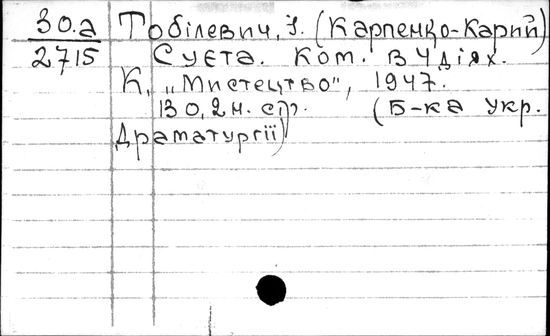 30.a Тобілевич, І. (Карпенко-Карий)
2715 Суєта. Ком. в 4 діях.
К, „Мистецтво", 1947.
130, 2 н. стр. (Б-ка укр.
драматургії)